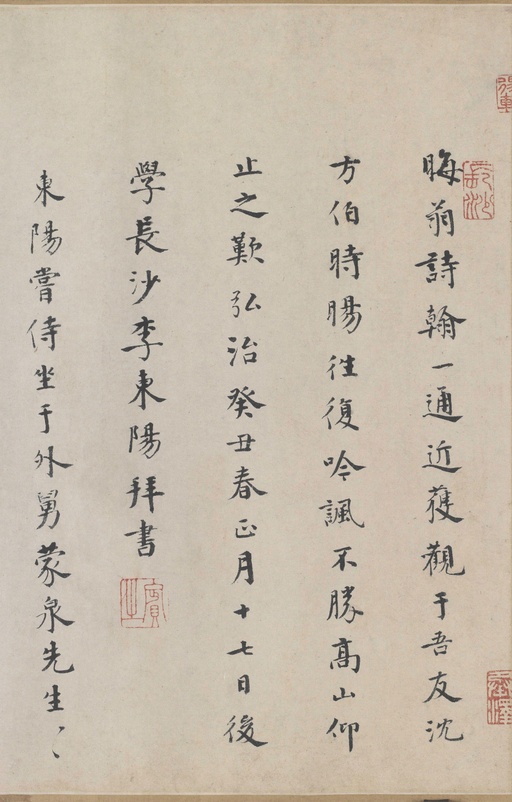 晦翁詩翰一通近獲觀于吾友沈
方伯時暘往復吟諷不勝高山仰
止之歎弘治癸丑春正月十七日後
學長沙李東陽拜書
東陽嘗侍坐于外舅蒙泉先生〻
長沙
賓之